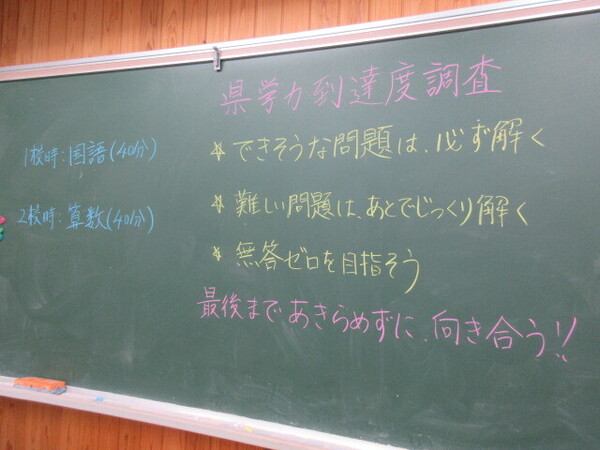 県学力到達度調査
1校時:国語(40分)
2校時:算数(40分)
☆できそうな問題は、必ず解く
☆難しい問題は、あとでじっくり解く
☆無答ゼロを目指そう
最後まであきらめずに、向き合う!!